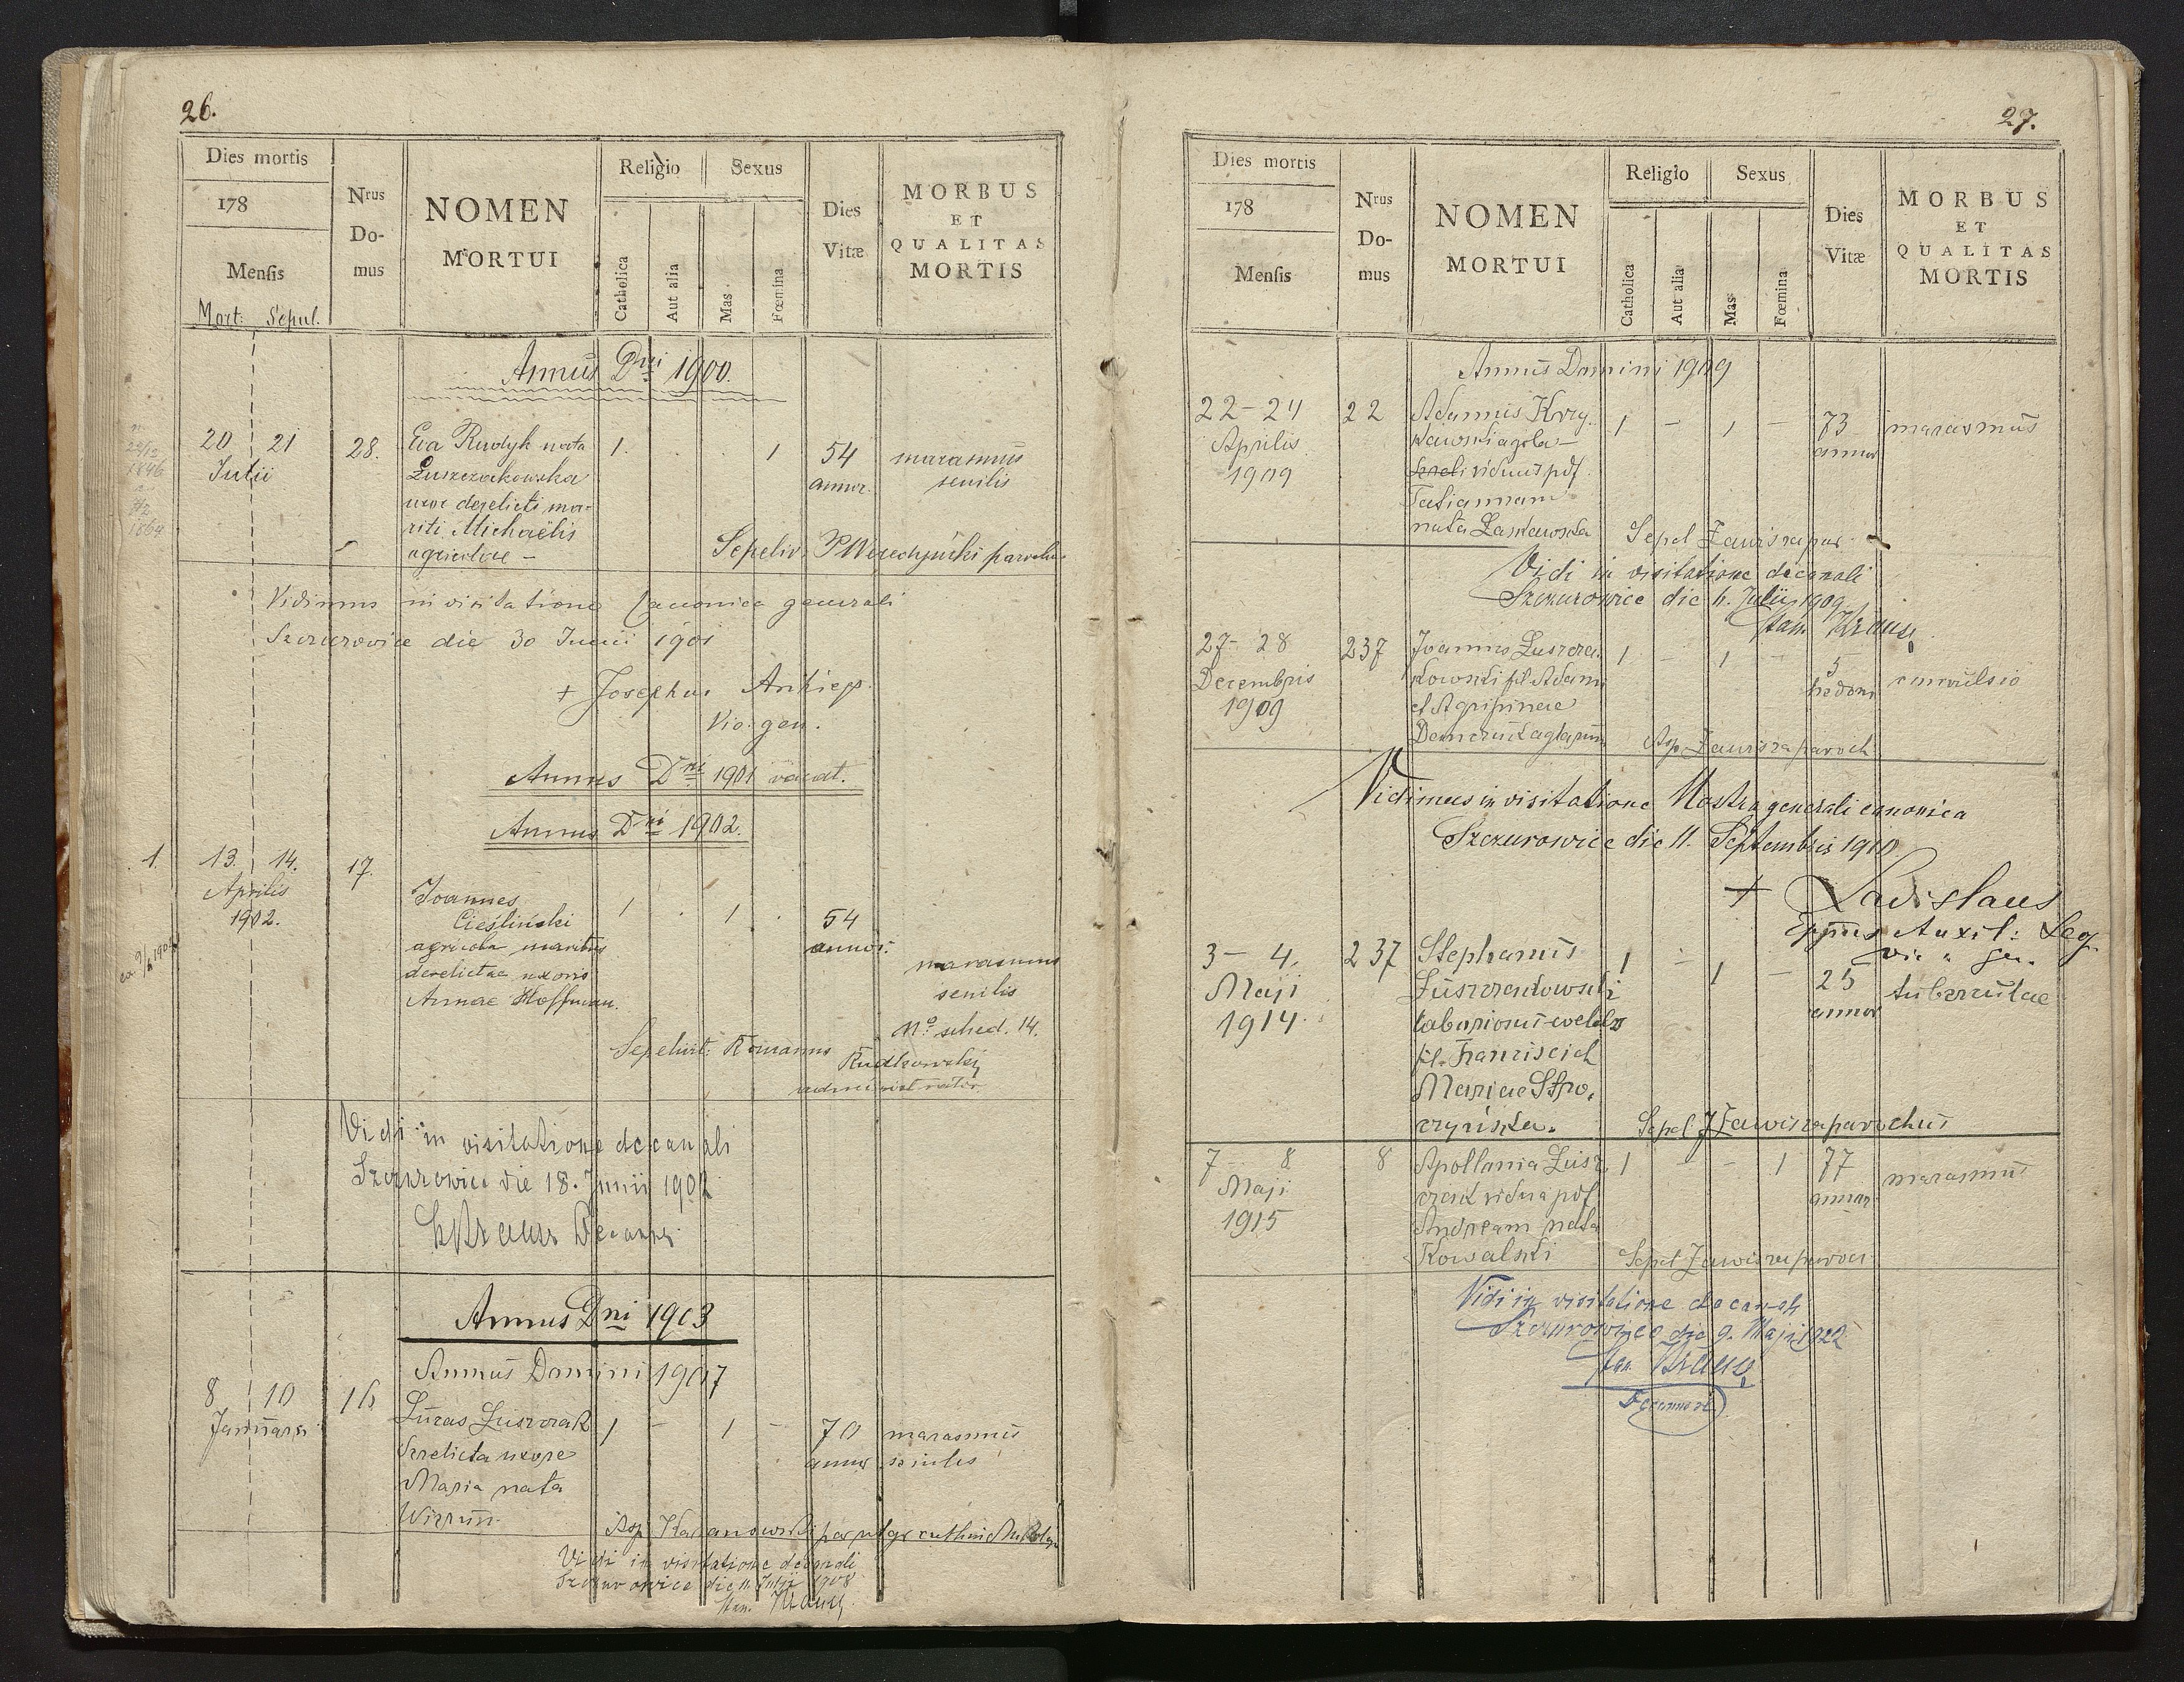 26.
Dies mortis
178
Mensis
Mort: Sepul.
Nrus
Do-
mus
NOMEN
MORTUI
Religio
Catholica
Aut alia
Sexus
Mas
Fœmina
Dies
Vitæ
MORBUS
ET
QUALITAS
MORTIS
Annus Dni 1900.
20 21
Julii
28.
Eva Rudyk nata
Łuszczakowska
uxor derelicti ma-
riti Michaëlis
agricolae -
1. . . 1
54
annor.
marasmus
senilis
Sepeliv. parochus
Vidimus in visitatione Canonica generali
Szczurowice die 30 Junii 1901
+ Josephus Archiep.
Vic. gen.
Annus Dni 1901 vacat.
Annus Dni 1902.
1.
13. 14.
Aprilis
1902.
17.
Joannes
Cieśliński
agricola maritus
derelictae uxoris
Annae Hoffman.
1 . 1 .
54
annor.
marasmus
senilis
No. sched. 14.
Sepelivit: Romanus
Rudkowski
administrator
Vidi in visitatione decanali
Szczurowice die 18. Junii 1902
Kraus Decanus.
Annus Dni 1903
Annus Domini 1907
8 10
Januarii
16
Lucas Luszczak
derelicta uxore
Maria nata
1 - 1 -
70
annor
marasmus
senilis
Vidi in visitatione decanali
Szczurowice die 11 Julii 1908
Stan. Kraus
27.
Dies mortis
178
Mensis
Nrus
Do-
mus
NOMEN
MORTUI
Religio
Catholica
Aut alia
Sexus
Mas
Fœmina
Dies
Vitæ
MORBUS
ET
QUALITAS
MORTIS
Annus Domini 1909
22 - 24
Aprilis
1909
22
Adamus
viduus pdf.
Tatianam
nata
1 - 1 -
73
annor
marasmus
Sepel Zawisza par
Vidi in visitatione decanali
Szczurowice die 6. Julii 1909
Stan. Kraus
27 - 28
Decembris
1909
237
Joannes Luszcza
kowski fil Adami
et Agripinae
1 - 1 -
5
hedom
convulsio
Asp Zawisza paroch
Vidimus in visitatione Nostra generali canonica
Szczurowice die 11. Septembris 1910.
+ Ladislaus
Eppus Auxil: Leop.
vic. gen.
3 - 4.
Maji
1914.
237
Stephanus
Luszczakowski
fil. Francisci et
Mariae
1 - 1 -
25
annor
tuberculae
Sepel J Zawisza parochus
7 8
Maji
1915
8
Apollonia Lusz
czak vidua pdf.
Andream nata
Kowalski
1 - - 1
77
annor
marasmus
Sepel Zawisza paroch
Vidi in visitatione decanali
Szczurowice die 9. Maji 1922
Stan. Kraus